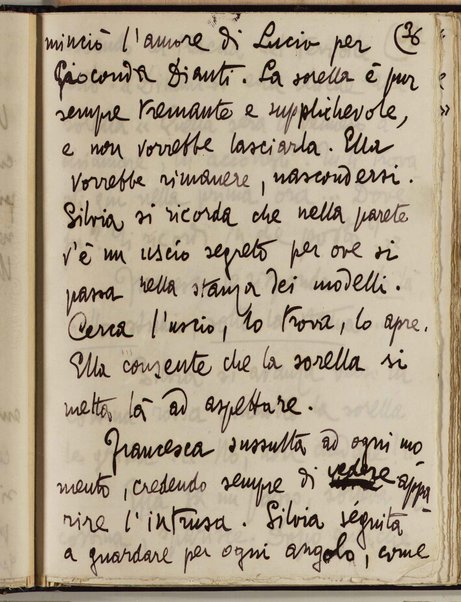 minciò l'amore di Lucio per 36
Gioconda Dianti. La sorella è pur
sempre tremante e supplichevole,
e non vorrebbe lasciarla. Ella
vorrebbe rimanere, nascondersi.
Silvia si ricorda che nella parete
v'è un uscio segreto per ove si
passa nella stanza dei modelli.
Cerca l'uscio, lo trova, lo apre.
Ella consente che la sorella si
metta là ad aspettare.
Francesca sussulta ad ogni mo
mento, credendo sempre di vedere appa
rire l'intrusa. Silvia séguita
a guardare per ogni angolo, come